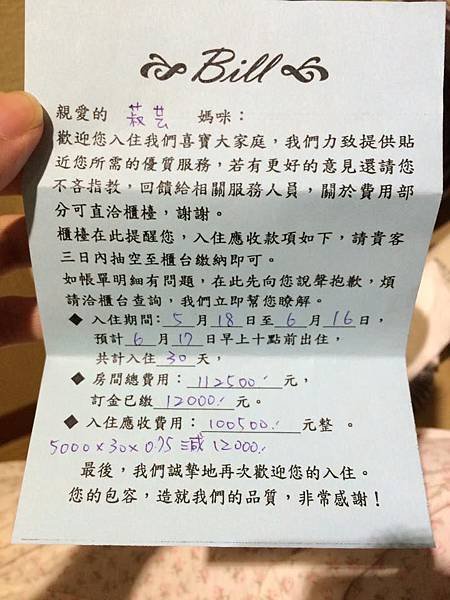 Bill
親愛的 菽芸 媽咪：
歡迎您入住我們喜寶大家庭，我們力致提供貼
近您所需的優質服務，若有更好的意見還請您
不吝指教，回饋給相關服務人員，關於費用部
分可直洽櫃檯，謝謝。
櫃檯在此提醒您，入住應收款項如下，請貴客
三日內抽空至櫃台繳納即可。
如帳單明細有問題，在此先向您說聲抱歉，煩
請洽櫃台查詢，我們立即幫您瞭解。
◆ 入住期間：5月18日至6月16日，
預計6月17日早上十點前出住，
共計入住30天，
◆ 房間總費用：112500.-元，
訂金已繳12000.-元。
◆ 入住應收費用：100500.-元整 。
5000×30×0.75 減 12000.-
最後，我們誠摯地再次歡迎您的入住。
您的包容，造就我們的品質，非常感謝！